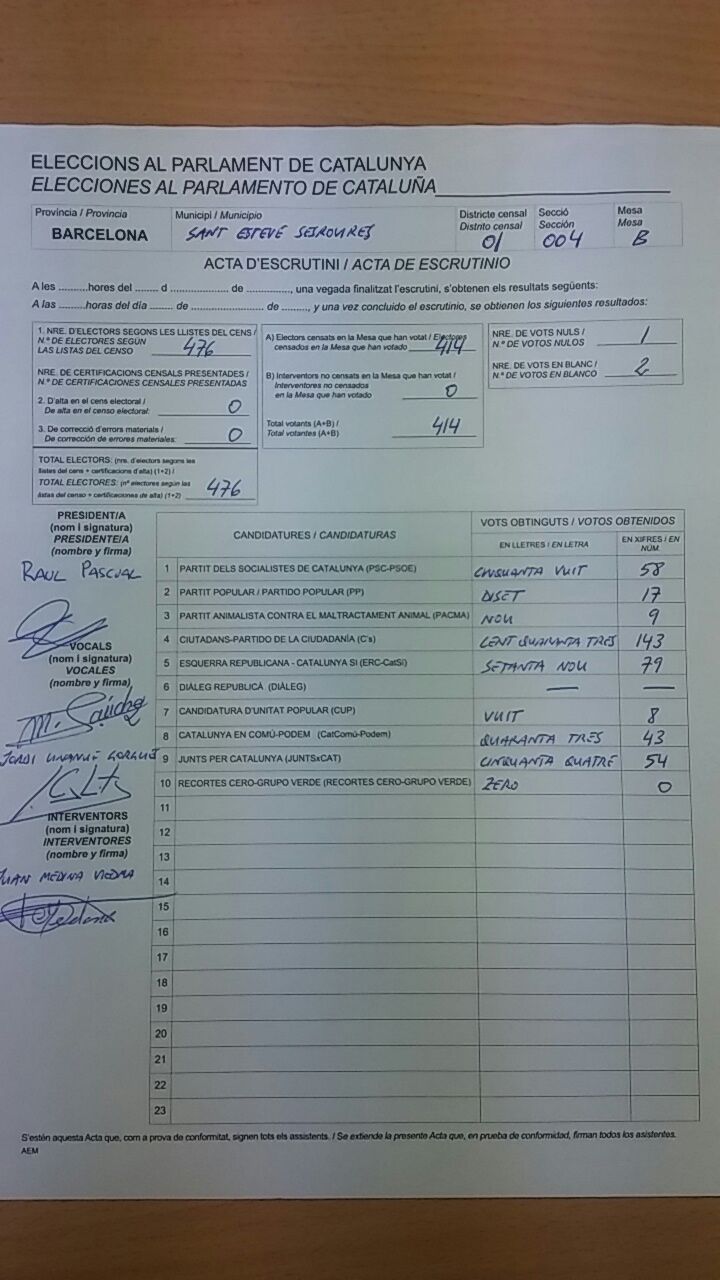 ELECCIONS AL PARLAMENT DE CATALUNYA
ELECCIONES AL PARLAMENTO DE CATALUÑA
Província / Provincia
BARCELONA
Municipi / Municipio
SANT ESTEVE SESROVIRES
Districte censal
Distrito censal
01
Secció
Sección
004
Mesa
Mesa
B
ACTA D'ESCRUTINI / ACTA DE ESCRUTINIO
A les ..........hores del ....... d .................. de .............., una vegada finalitzat l'escrutini, s'obtenen els resultats següents:
A las .........horas del día ....... de .................. de ........, y una vez concluido el escrutinio, se obtienen los siguientes resultados:
1. NRE. D'ELECTORS SEGONS LES LLISTES DEL CENS /
N.º DE ELECTORES SEGÚN
LAS LISTAS DEL CENSO 476
NRE. DE CERTIFICACIONS CENSALS PRESENTADES /
N.º DE CERTIFICACIONES CENSALES PRESENTADAS
2. D'alta en el cens electoral /
De alta en el censo electoral: 0
3. De correcció d'errors materials /
De corrección de errores materiales: 0
TOTAL ELECTORS: (nre. d'electors segons les
llistes del cens + certificacions d'alta) (1+2) /
TOTAL ELECTORES: (nº electores según las
listas del censo + certificaciones de alta) (1+2) 476
A) Electors censats en la Mesa que han votat / Electores
censados en la Mesa que han votado 414
B) Interventors no censats en la Mesa que han votat /
Interventores no censados
en la Mesa que han votado 0
Total votants (A+B) /
Total votantes (A+B) 414
NRE. DE VOTS NULS /
N.º DE VOTOS NULOS 1
NRE. DE VOTS EN BLANC /
N.º DE VOTOS EN BLANCO 2
PRESIDENT/A
(nom i signatura)
PRESIDENTE/A
(nombre y firma)
RAUL PASCUAL
VOCALS
(nom i signatura)
VOCALES
(nombre y firma)
M. Sánchez
JORDI
INTERVENTORS
(nom i signatura)
INTERVENTORES
(nombre y firma)
JUAN MEDINA VIEDMA
CANDIDATURES / CANDIDATURAS
VOTS OBTINGUTS / VOTOS OBTENIDOS
EN LLETRES / EN LETRA
EN XIFRES / EN NÚM.
1 PARTIT DELS SOCIALISTES DE CATALUNYA (PSC-PSOE) CINQUANTA VUIT 58
2 PARTIT POPULAR / PARTIDO POPULAR (PP) DISET 17
3 PARTIT ANIMALISTA CONTRA EL MALTRACTAMENT ANIMAL (PACMA) NOU 9
4 CIUTADANS-PARTIDO DE LA CIUDADANÍA (C's) CENT QUARANTA TRES 143
5 ESQUERRA REPUBLICANA - CATALUNYA SI (ERC-CatSí) SETANTA NOU 79
6 DIÀLEG REPUBLICÀ (DIÀLEG) — —
7 CANDIDATURA D'UNITAT POPULAR (CUP) VUIT 8
8 CATALUNYA EN COMÚ-PODEM (CatComú-Podem) QUARANTA TRES 43
9 JUNTS PER CATALUNYA (JUNTSxCAT) CINQUANTA QUATRE 54
10 RECORTES CERO-GRUPO VERDE (RECORTES CERO-GRUPO VERDE) ZERO 0
11
12
13
14
15
16
17
18
19
20
21
22
23
S'estén aquesta Acta que, com a prova de conformitat, signen tots els assistents. / Se extiende la presente Acta que, en prueba de conformidad, firman todos los asistentes.
AEM